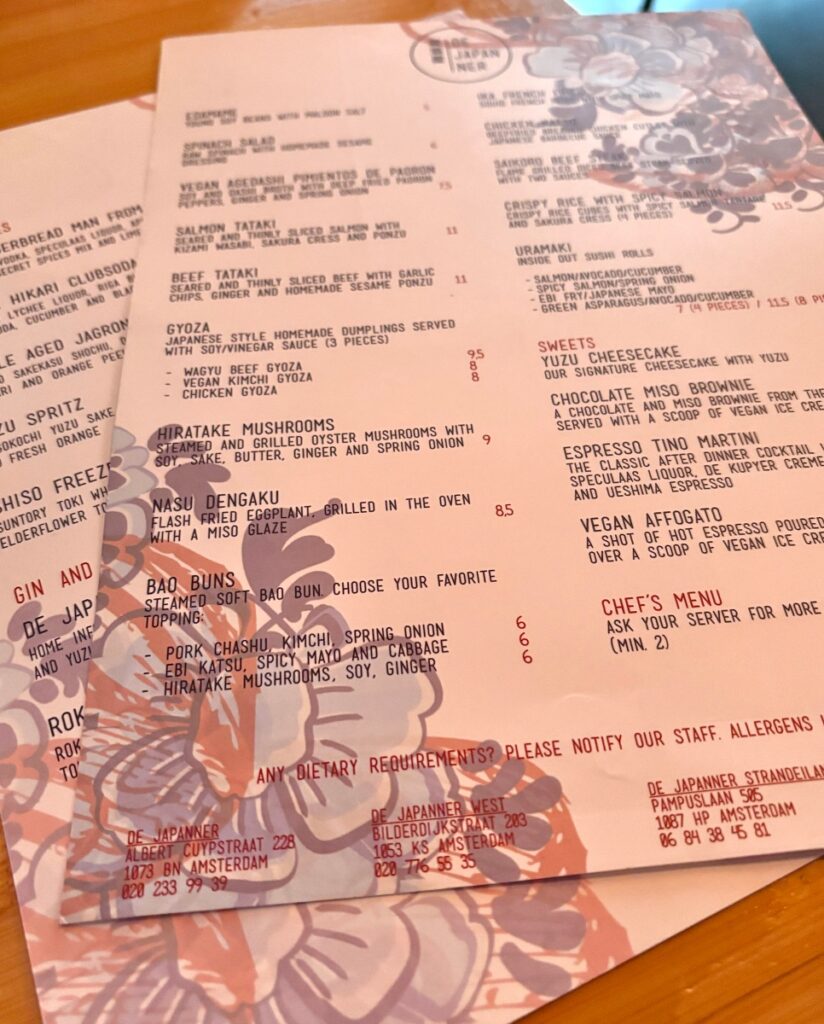 DE
JAPAN
NER
EDAMAME
YOUNG SOY BEANS WITH MALDON SALT
SPINACH SALAD
RAW SPINACH WITH HOMEMADE SESAME
DRESSING
VEGAN AGEDASHI PIMIENTOS DE PADRON
SOY AND DASHI BROTH WITH DEEP FRIED PADRON
PEPPERS, GINGER AND SPRING ONION 7,5
SALMON TATAKI
SEARED AND THINLY SLICED SALMON WITH 11
KIZAMI WASABI, SAKURA CRESS AND PONZU
BEEF TATAKI
SEARED AND THINLY SLICED BEEF WITH GARLIC 11
CHIPS, GINGER AND HOMEMADE SESAME PONZU
GYOZA
JAPANESE STYLE HOMEMADE DUMPLINGS SERVED
WITH SOY/VINEGAR SAUCE (3 PIECES)
- WAGYU BEEF GYOZA 9,5
- VEGAN KIMCHI GYOZA 8
- CHICKEN GYOZA 8
HIRATAKE MUSHROOMS
STEAMED AND GRILLED OYSTER MUSHROOMS WITH
SOY, SAKE, BUTTER, GINGER AND SPRING ONION 9
NASU DENGAKU
FLASH FRIED EGGPLANT, GRILLED IN THE OVEN 8,5
WITH A MISO GLAZE
BAO BUNS
STEAMED SOFT BAO BUN. CHOOSE YOUR FAVORITE
TOPPING:
- PORK CHASHU, KIMCHI, SPRING ONION 6
- EBI KATSU, SPICY MAYO AND CABBAGE 6
- HIRATAKE MUSHROOMS, SOY, GINGER 6
FRENCH
CHICKEN
CHICKEN
JAPANESE BARBECUE
SAIKORO BEEF
FLAME GRILLED
WITH TWO SAUCES
CRISPY RICE WITH SPICY SALMON
CRISPY RICE CUBES WITH SPICY SALMON TARTARE 11,5
AND SAKURA CRESS (4 PIECES)
URAMAKI
INSIDE OUT SUSHI ROLLS
- SALMON/AVOCADO/CUCUMBER
- SPICY SALMON/SPRING ONION
- EBI FRY/JAPANESE MAYO
- GREEN ASPARAGUS/AVOCADO/CUCUMBER
7 (4 PIECES) / 11,5 (8 PI
SWEETS
YUZU CHEESECAKE
OUR SIGNATURE CHEESECAKE WITH YUZU
CHOCOLATE MISO BROWNIE
A CHOCOLATE AND MISO BROWNIE FROM THE
SERVED WITH A SCOOP OF VEGAN ICE CRE
ESPRESSO TINO MARTINI
THE CLASSIC AFTER DINNER COCKTAIL
SPECULAAS LIQUOR, DE KUPYER CREME
AND UESHIMA ESPRESSO
VEGAN AFFOGATO
A SHOT OF HOT ESPRESSO POURED
OVER A SCOOP OF VEGAN ICE CRE
CHEF'S MENU
ASK YOUR SERVER FOR MORE
(MIN. 2)
ANY DIETARY REQUIREMENTS? PLEASE NOTIFY OUR STAFF. ALLERGENS
DE JAPANNER
ALBERT CUYPSTRAAT 228
1073 BN AMSTERDAM
020 233 99 39
DE JAPANNER WEST
BILDERDIJKSTRAAT 203
1053 KS AMSTERDAM
020 776 55 35
DE JAPANNER STRANDEILAN
PAMPUSLAAN 505
1087 HP AMSTERDAM
06 84 38 45 81
ERBREAD MAN FROM
VODKA, SPECULAAS LIQUOR,
SECRET SPICES MIX AND LIME
HIKARI CLUBSODA
LYCHEE LIQUOR, RIGA B
DA, CUCUMBER AND BLA
LE AGED JAGRON
SAKEKASU SHOCHU,
RI AND ORANGE PEE
ZU SPRITZ
SOKOCHI YUZU SAKE
FRESH ORANGE
SHISO FREEZ
SUNTORY TOKI WH
ELDERFLOWER TO
GIN AND
DE JAP
HOME INF
AND YUZU
ROK
ROK
TO